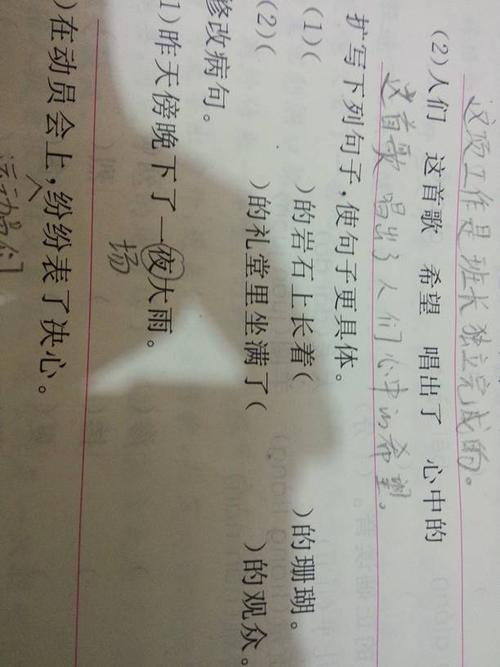 这项工作是班长独立完成的。
(2)人们 这首歌 希望 唱出了 心中的
这首歌 唱出了人们心中的希望。
扩写下列句子,使句子更具体。
(1)( )的岩石上长着( )的珊瑚。
(2)( )的礼堂里坐满了( )的观众。
修改病句。
1)昨天傍晚下了一夜大雨。
场
)在动员会上,纷纷表了决心。
运动员们